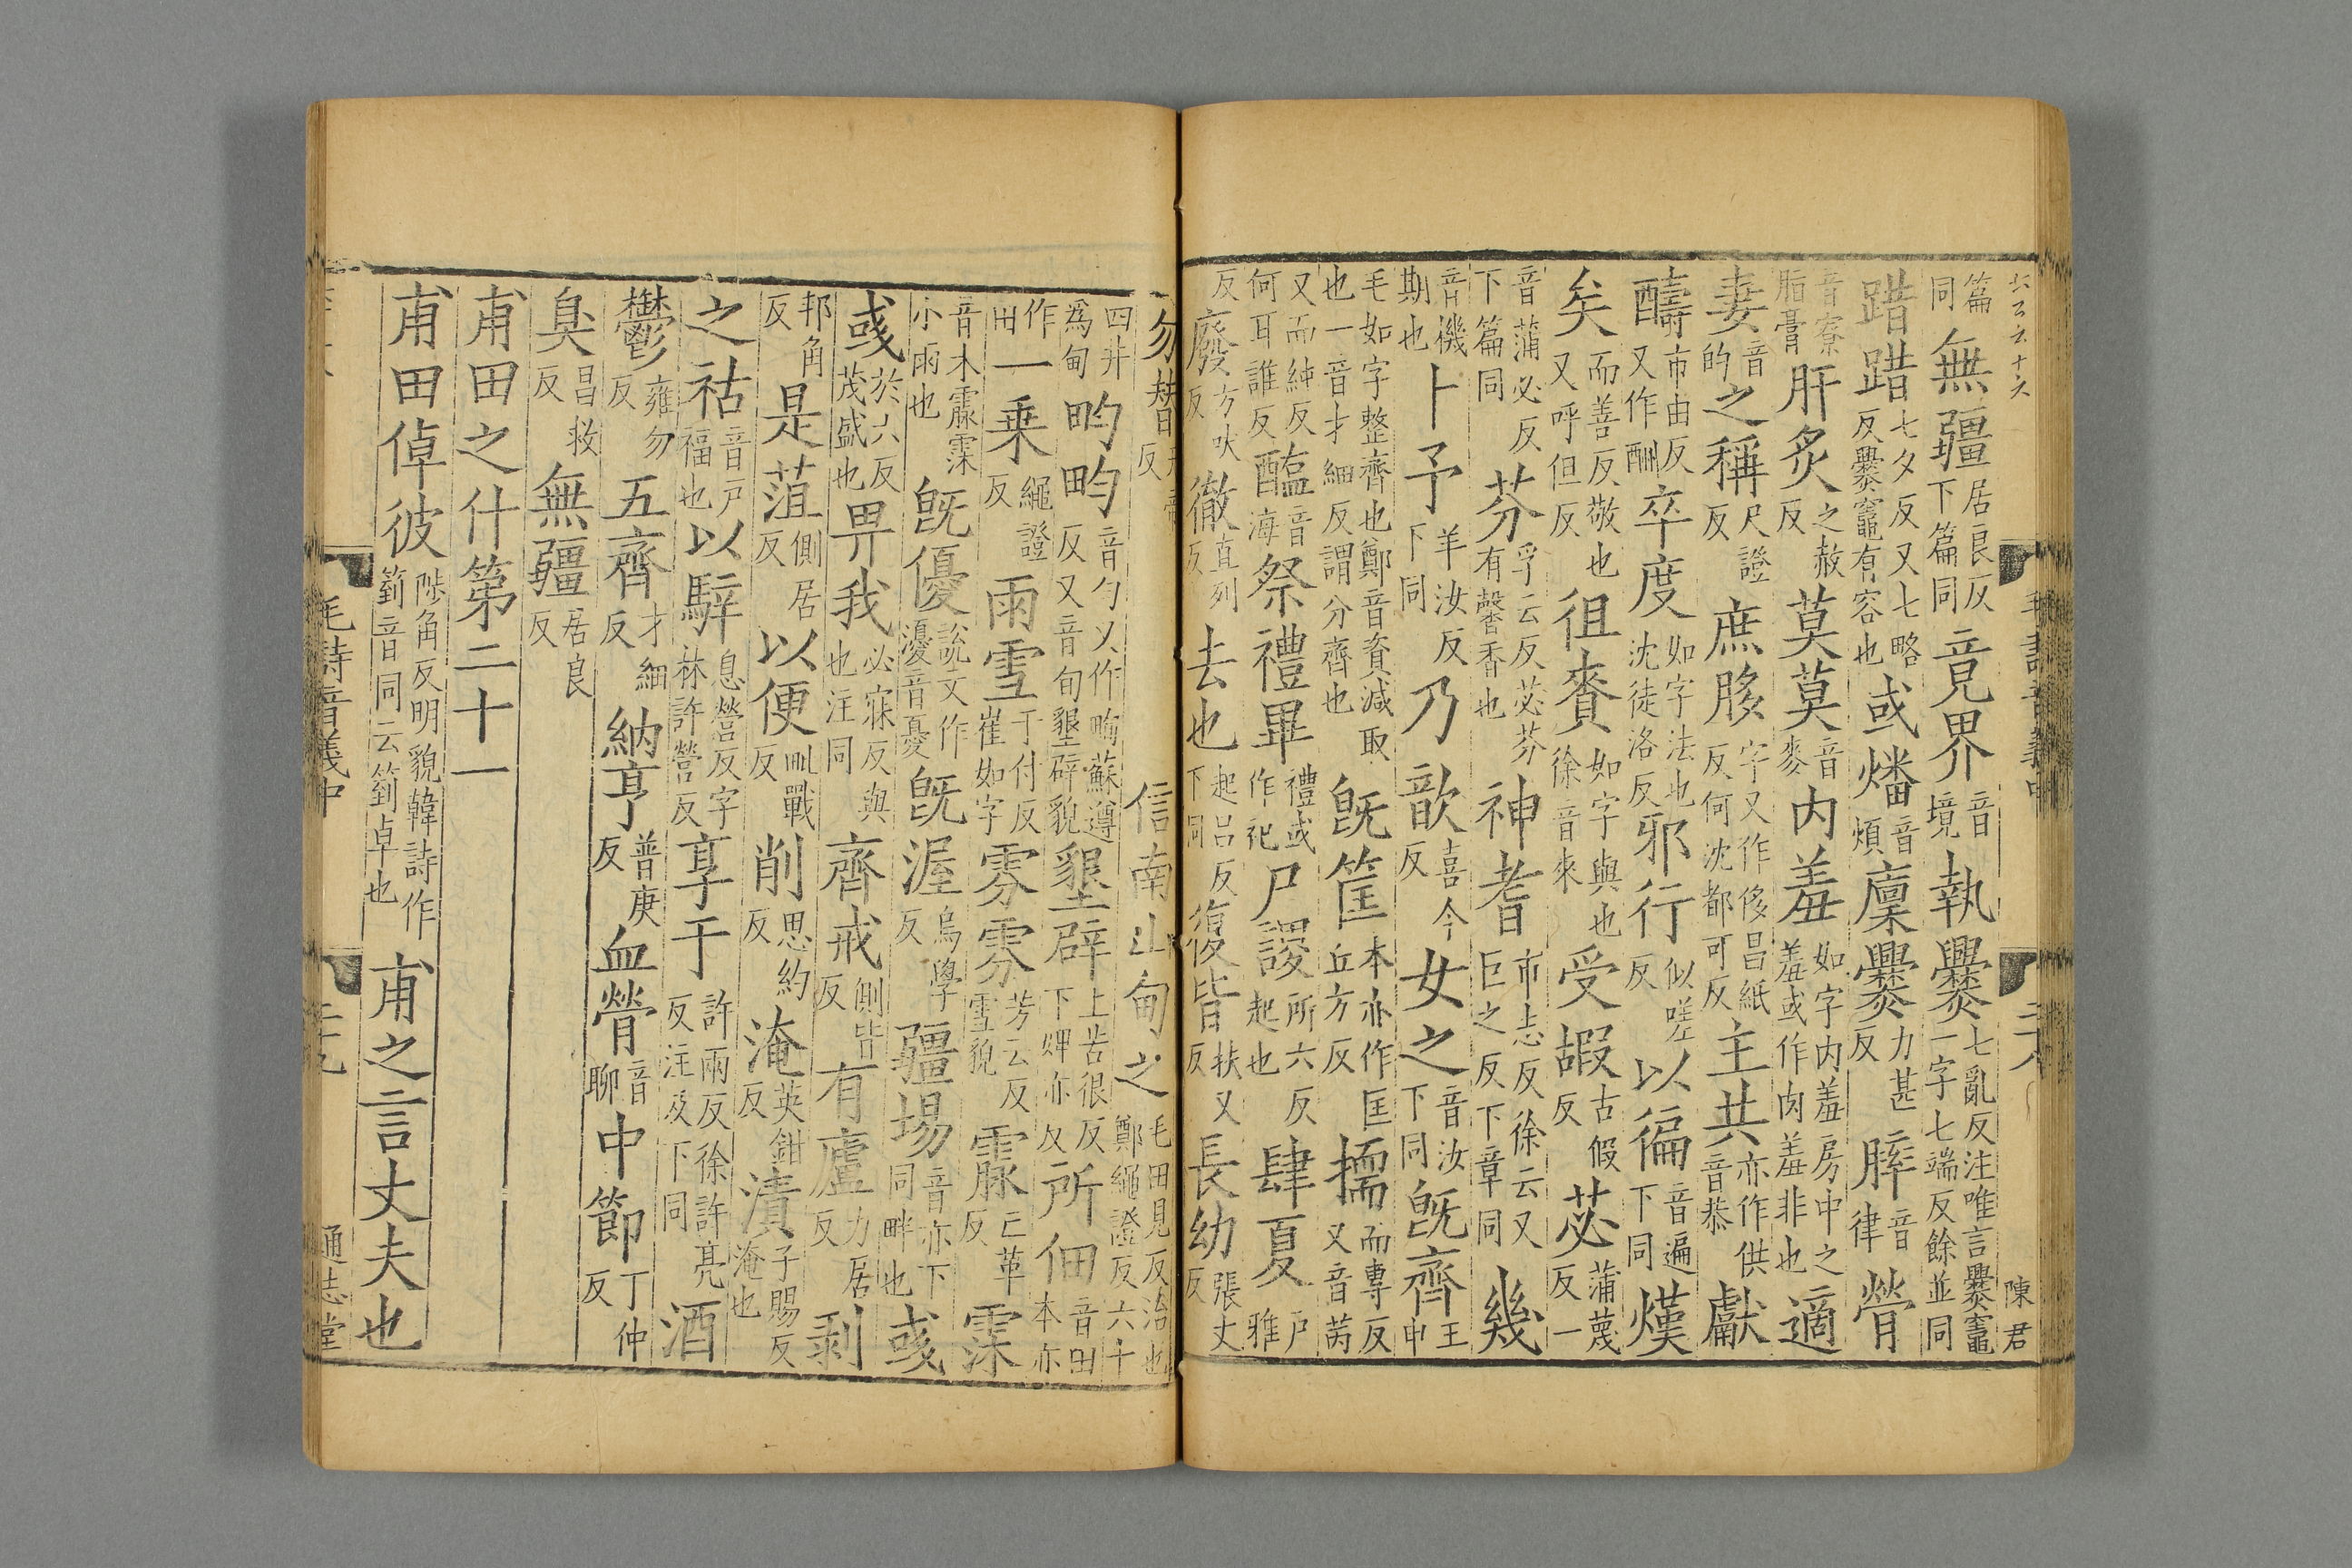 篇同無疆居良反下篇同竟界音境執爨七亂反注唯言爨竈一字七端反餘並同
踖踖七夕反又七略反爨竈有容也或燔音煩廩爨力甚反膟音律膋
音寮脂膏肝炙之赦反莫莫音麥内羞如字内羞房中之羞或作肉羞非也適
妻音的之稱尺證反庶䏧字又作侈昌紙反何沈都可反主共亦作供音恭獻
醻市由反又作酬卒度如字法也沈徒洛反邪行似嗟反以徧音遍下同熯
矣而善反敬也又呼但反徂賚如字與也徐音來受嘏古假反苾蒲蔑反一
音蒲必反下篇同芬孚云反苾芬有馨香也神耆市志反徐云又巨之反下章同幾
音機期也卜予羊汝反下同乃歆喜今反女之音汝下同既齊王申
毛如字整齊也鄭音資減取也一音才細反謂分齊也既筐本亦作匡丘方反擩而專反又音芮
又而純反何耳誰反醢音海祭禮畢禮或作祀尸謖所六反起也肆夏户雅
反廢方吠反徹直列反去也起呂反下同復皆扶又反長幼張丈反
毛詩音義中 二十八 陳君
勿替天帝反信南山甸之毛田見反治也鄭繩證反六十
四井爲甸畇畇音勻又作㽦蘇遵反又音旬墾辟貌墾辟上苦很反下婢亦反所佃音田本亦
作田一乗繩證反雨雪于付反崔如字雰雰芳云反雪貌霢亡革反霂
音木霢霂小雨也既優説文作瀀音憂既渥烏學反疆埸音亦下同畔也彧
彧於六反茂盛也畀我必寐反與也注同齊戒側皆反有廬力居反剥
邦角反是菹側居反以便毗戰反削思約反淹英鉗反漬子賜反淹也
之祜音户福也以騂息營反字林許營反享于許兩反徐許亮反注及下同酒
鬱雍勿反五齊才細反納亨普庚反血膋音聊中節丁仲反
臭昌救反無疆居良反
甫田之什第二十一
甫田倬彼陟角反明貌韓詩作箌音同云箌卓也甫之言丈夫也
毛詩音義中 二十九 通志堂